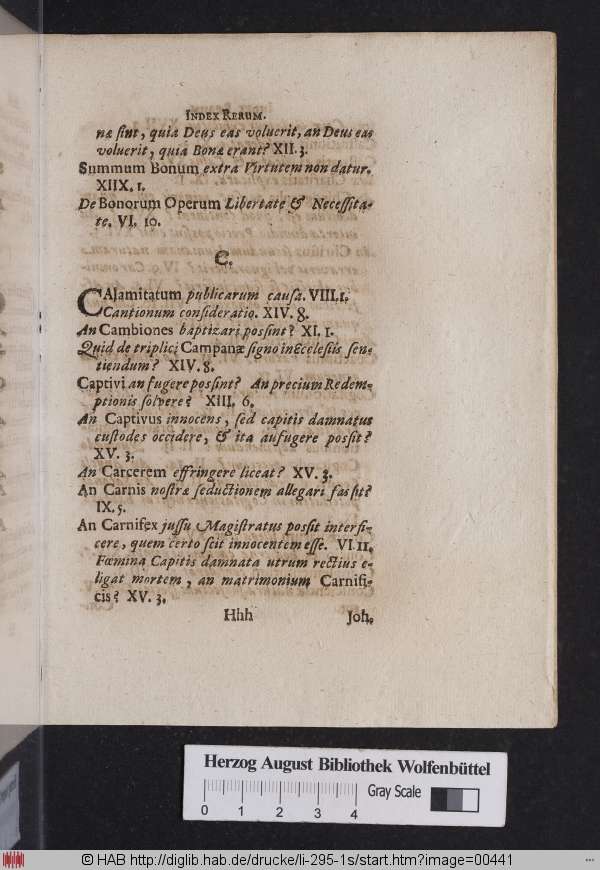 INDEX RERUM.
næ sint, quia Deus eas voluerit, an Deus eas
voluerit, quia Bonæ erant? XII. 3.
Summum Bonum extra Virtutem non datur.
XIIX. 1.
De Bonorum Operum Libertate & Necessita-
te. VI. 10.
C.
CAlamitatum publicarum causa. VIII. 1.
Cantionum consideratio. XIV. 8.
An Cambiones baptizari possint? XI. 1.
Quid de triplici Campanæ signo in Ecclesiis sen-
tiendum? XIV. 8.
Captivi an fugere possint? An precium Redem-
ptionis solvere? XIII. 6.
An Captivus innocens, sed capitis damnatus
custodes occidere, & ita aufugere possit?
XV. 3.
An Carcerem effringere liceat? XV. 3.
An Carnis nostræ seductionem allegari fas sit?
IX. 5.
An Carnifex jussu Magistratus possit interfi-
cere, quem certo scit innocentem esse. VI. 11.
Fœmina Capitis damnata utrum rectius e-
ligat mortem, an matrimonium Carnifi-
cis? XV. 3.
Hhh Joh.
Herzog August Bibliothek Wolfenbüttel
Gray Scale
0 1 2 3 4
© HAB http://diglib.hab.de/drucke/li-295-1s/start.htm?image=00441